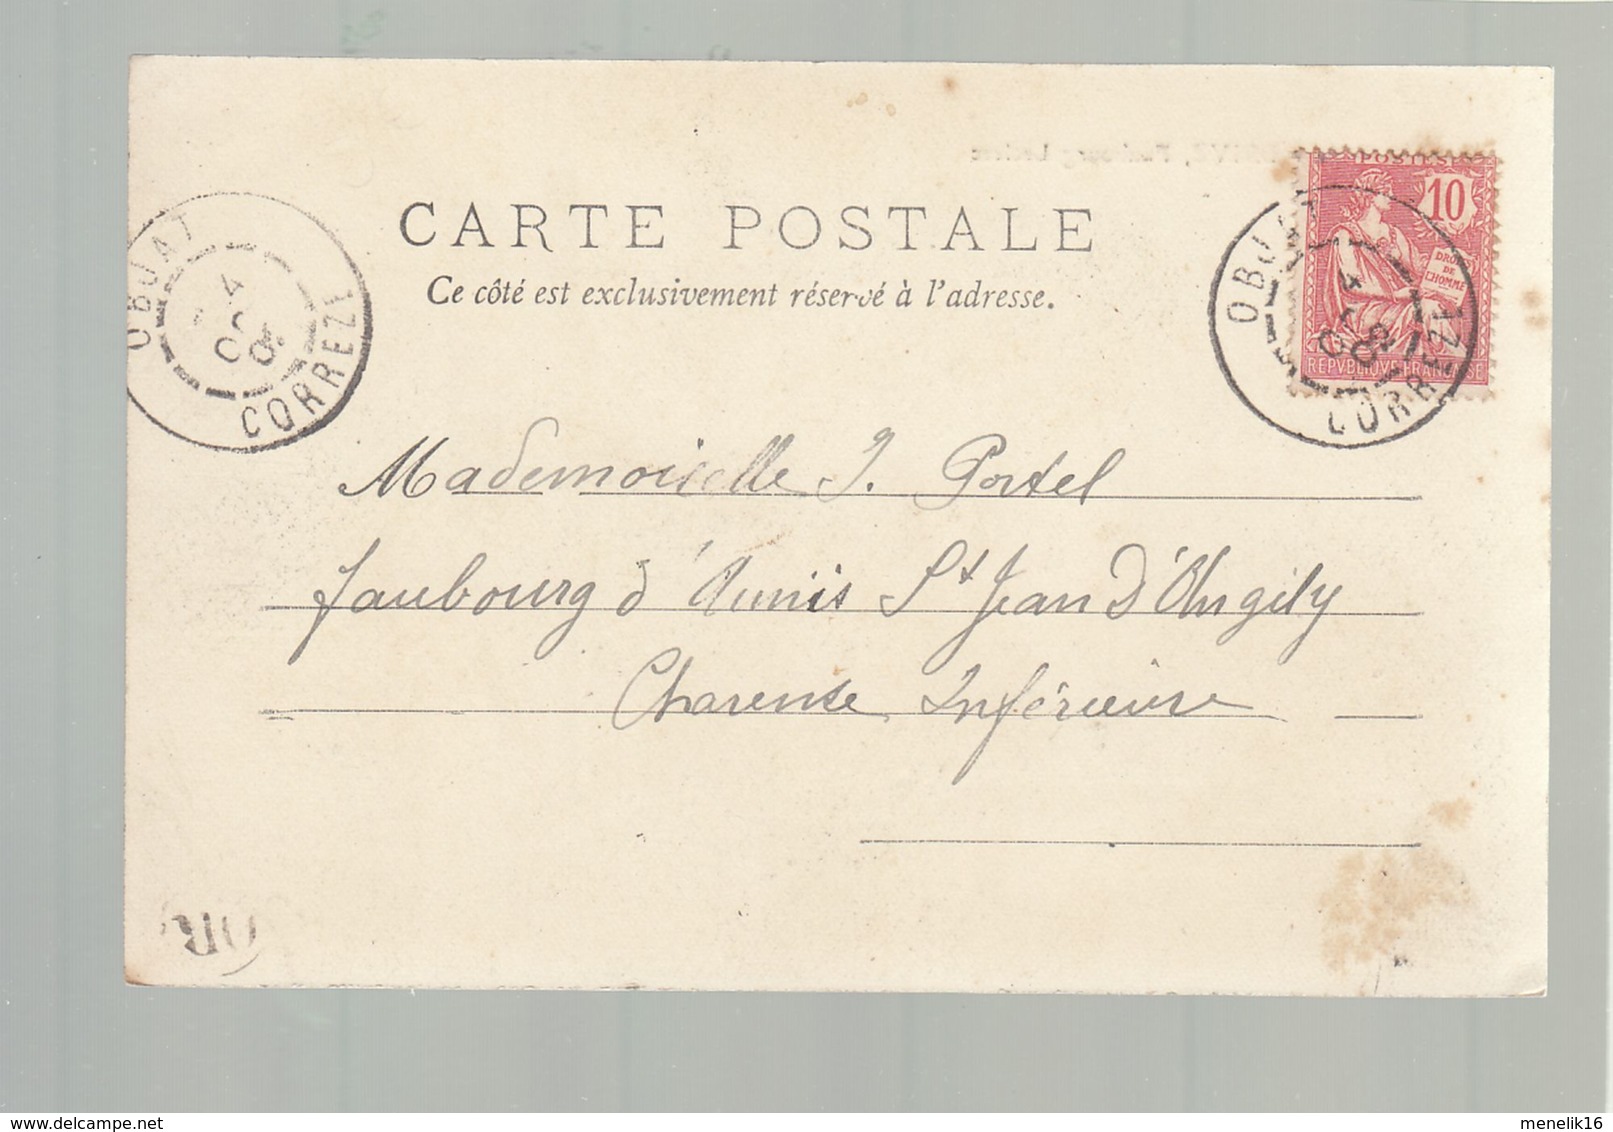 CARTE POSTALE
Ce côté est exclusivement réservé à l'adresse.
OBJAT
4
00
CORREZE
POSTES
10
DROITS
DE
L'HOMME
REPVBLIQVE FRANÇAISE
OBJAT
4
00
CORREZE
Mademoiselle J. Portel
faubourg d'Aunis St Jean D'Angily
Charente Inférieure
OR
menelik16